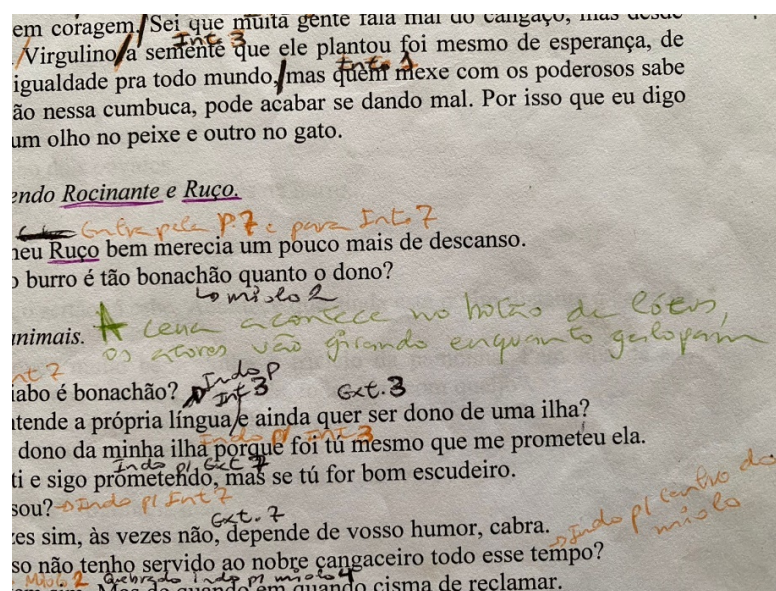 em coragem. Sei que muita gente fala mal do cangaço, mas desde
Int 3
Virgulino a semente que ele plantou foi mesmo de esperança, de
igualdade pra todo mundo, mas quem mexe com os poderosos sabe
ão nessa cumbuca, pode acabar se dando mal. Por isso que eu digo
um olho no peixe e outro no gato.
endo Rocinante e Ruço.
Entra pela P7 e para Int. 7
neu Ruço bem merecia um pouco mais de descanso.
o burro é tão bonachão quanto o dono?
miolo 2
animais. A cena acontece no botão de lótus,
os atores vão girando enquanto galopam
nt 7
iabo é bonachão? Indo p/ Int 3 Ext. 3
ntende a própria língua e ainda quer ser dono de uma ilha?
Indo p/ Int 3
dono da minha ilha porque foi tú mesmo que me prometeu ela.
Indo p/ Ext 7
ti e sigo prometendo, mas se tú for bom escudeiro.
sou? Indo p/ Int 7
Ext. 7
zes sim, às vezes não, depende de vosso humor, cabra.
Indo p/ centro do
miolo
so não tenho servido ao nobre cangaceiro todo esse tempo?
Miolo 2 Quebrado indo p/ miolo 4
em sim. Mas de quando em quando cisma de reclamar.